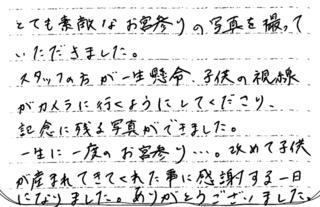 とても素敵なお宮参りの写真を撮って
いただきました。
スタッフの方が一生懸命、子供の視線
がカメラに行くようにしてくださり、
記念に残る写真ができました。
一生に一度のお宮参り…。改めて子供
が産まれてきてくれた事に感謝する一日
になりました。ありがとうございました。